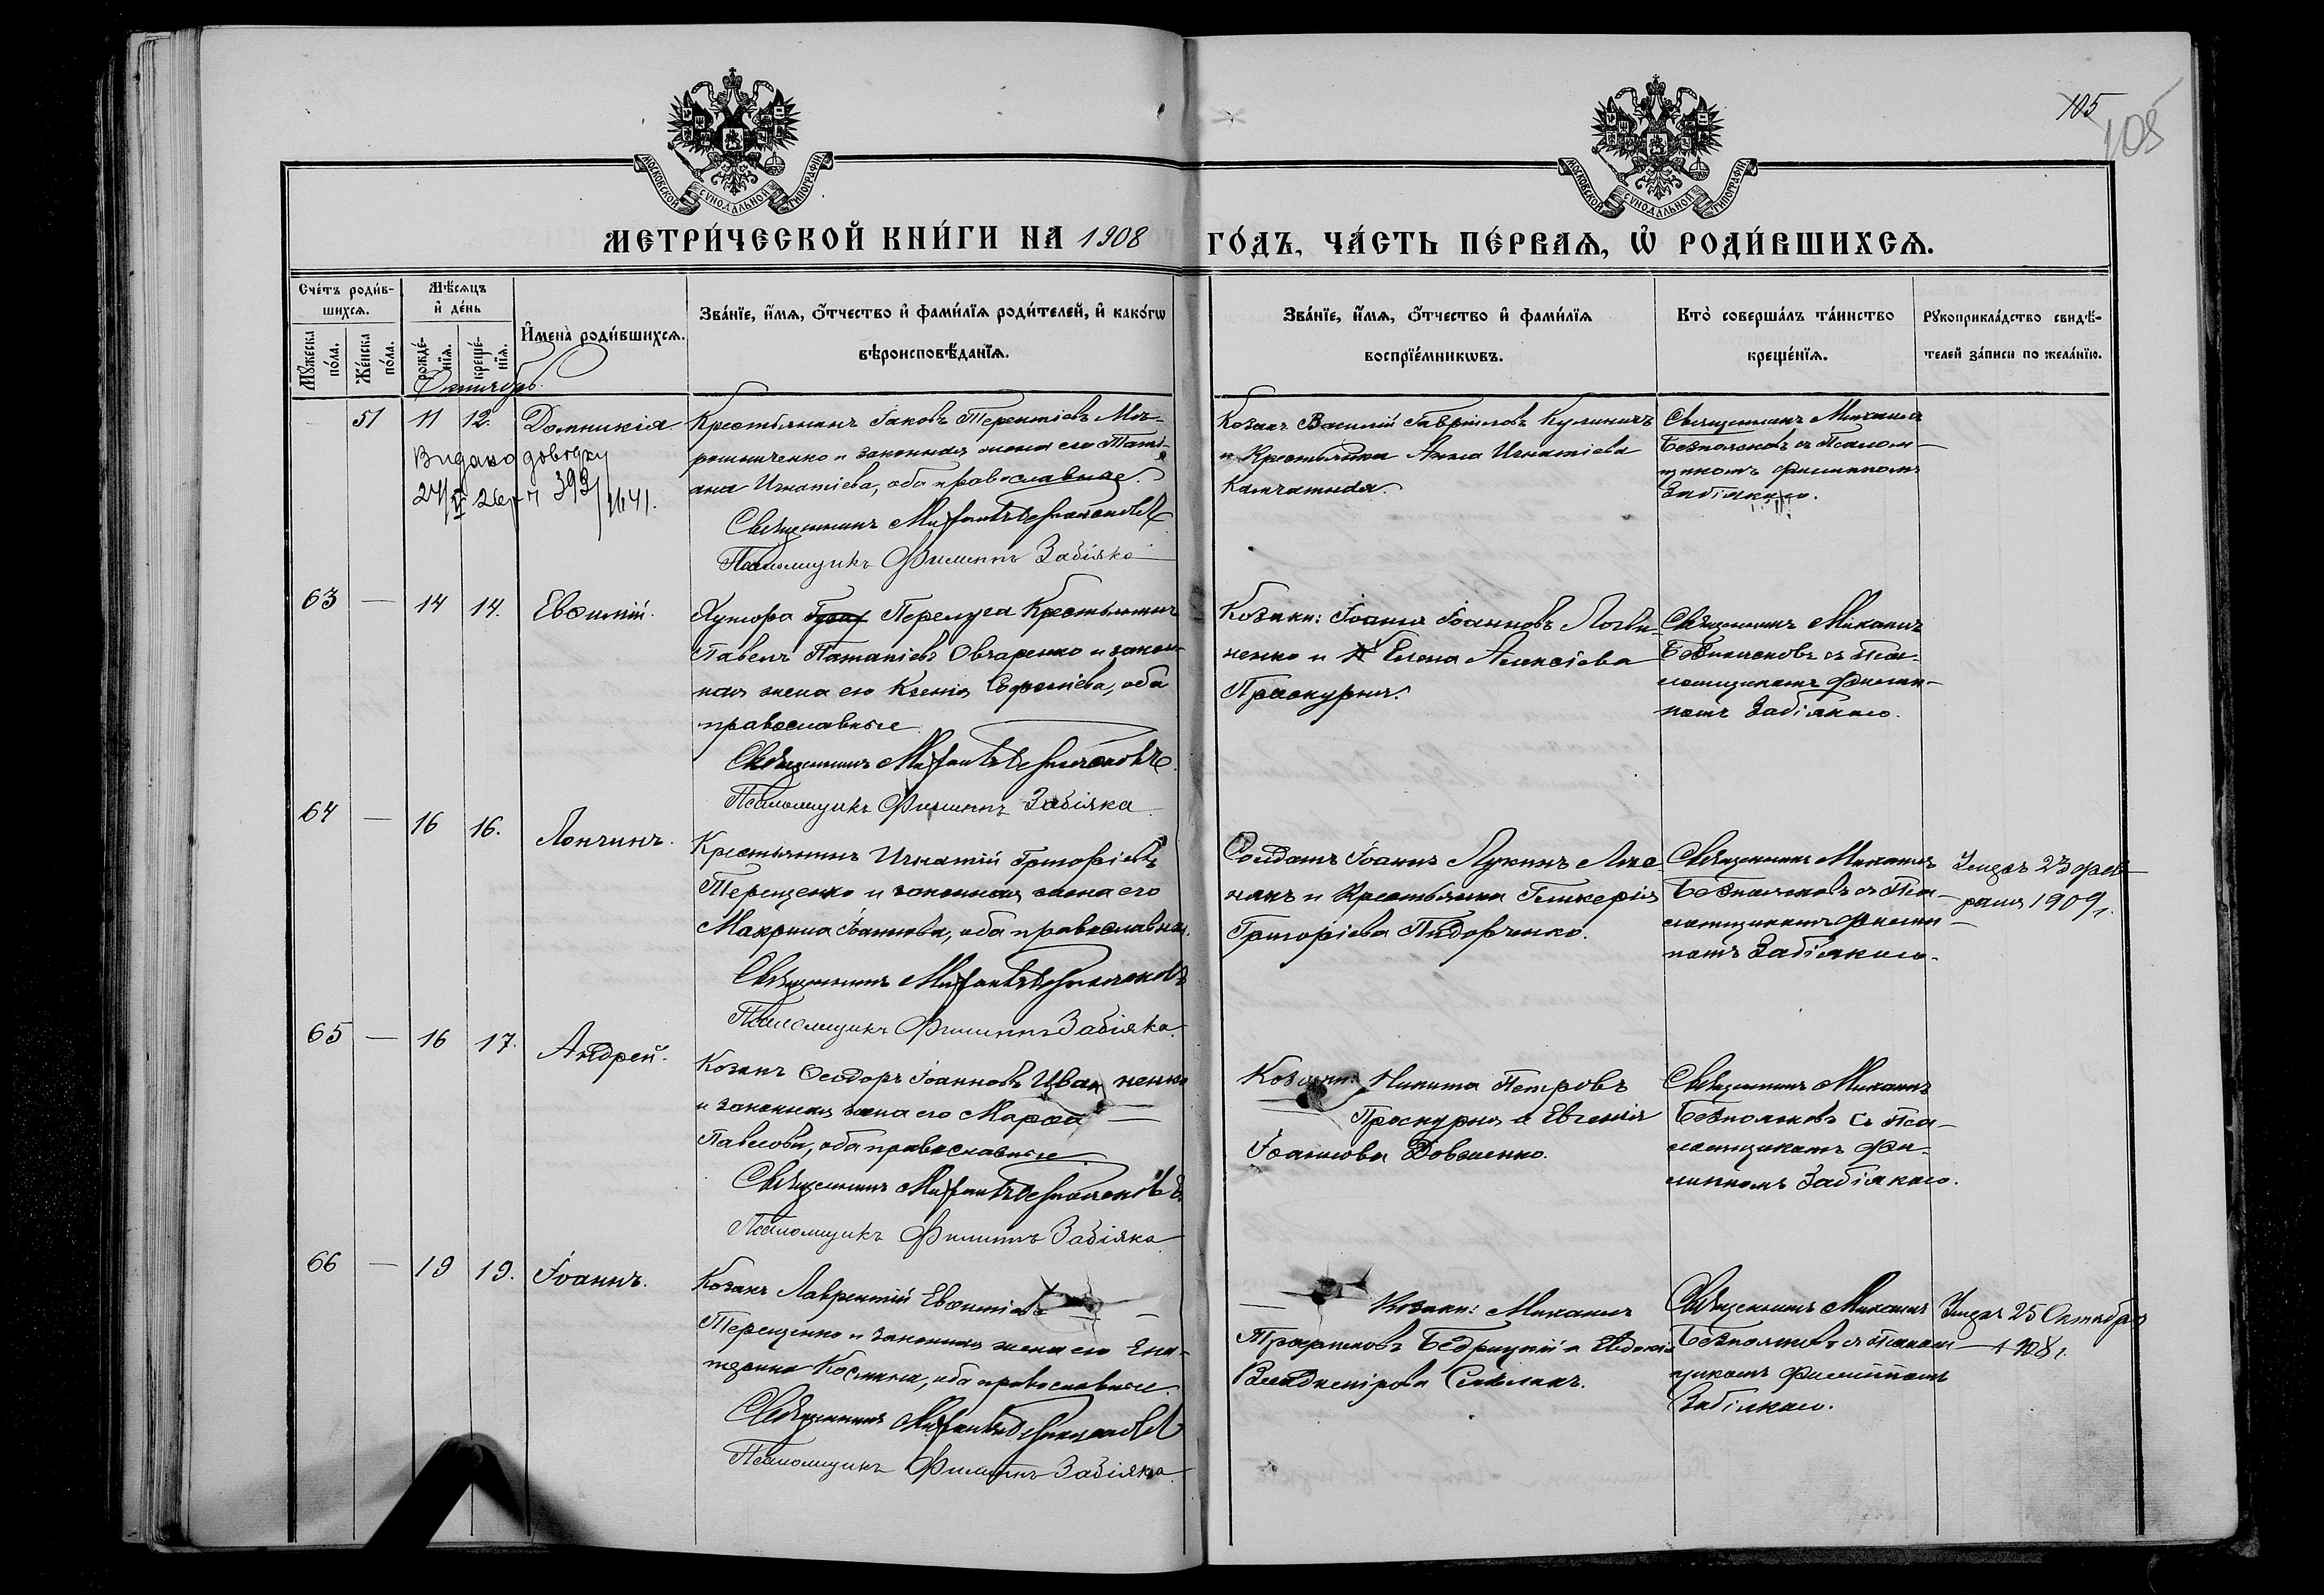 105
105
МОСКОВСКОЙ СУНОДАЛЬНОЙ ТИПОГРАФІИ
МОСКОВСКОЙ СУНОДАЛЬНОЙ ТИПОГРАФІИ
МЕТРИ́ЧЕСКОЙ КНИ́ГИ НА 1908 ГО́ДЪ, ЧА́СТЬ ПЕ́РВАѦ, Ѡ҆ РОДИ́ВШИХСѦ.
Сче́тъ роди́в-
шихсѧ.
Мꙋ́жеска по́ла.
Же́нска по́ла.
Мѣ́сѧцъ
и҆ де́нь
рожде́-
нїѧ.
креще́-
нїѧ.
И҆мена̀ роди́вшихсѧ.
Зва́нїе, и҆́мѧ, ѻ҆́тчество и҆ фами́лїѧ роди́телей, и҆ како́гѡ
вѣроисповѣ́данїѧ.
Зва́нїе, и҆́мѧ, ѻ҆́тчество и҆ фами́лїѧ
воспрїе́мникѡвъ.
Кто̀ соверша́лъ та́инство
креще́нїѧ.
Рꙋкоприкла́дство свидѣ́-
телей за́писи по жела́нїю.
Октябрь
51 11 12. Домникія
Видано довідку
24/V 26р ч 393/1641.
Крестьянинъ Іаковъ Терентіевъ Мѣ-
рошниченко и законная жена его Тати-
ана Игнатіева, оба православные.
Священникъ Михаилъ Безпояковъ
Псаломщикъ Филиппъ Забіяка
Козакъ Василій Гавріиловъ Кулиничъ
и Крестьянка Анна Игнатіева
Камчатная.
Священникъ Михаилъ
Безпояковъ съ Псалом-
щикомъ Филиппомъ
Забіякою.
63 — 14 14. Евѳимій.
Хутора Перелуга Крестьянинъ
Павелъ Патапіевъ Овчаренко и закон-
ная жена его Ксенія Ефреміева, оба
православные
Священникъ Михаилъ Безпояковъ
Псаломщикъ Филиппъ Забіяка
Козаки: Іоаннъ Іоанновъ Логви-
ненко и Елена Алексіева
Праскурня.
Священникъ Михаилъ
Безпояковъ съ Пса-
ломщикомъ Филип-
помъ Забіякою.
64 — 16 16. Лонгинъ.
Крестьянинъ Игнатій Григоріевъ
Терещенко и законная жена его
Макрина Іоаннова, оба православные.
Священникъ Михаилъ Безпояковъ
Псаломщикъ Филиппъ Забіяка
Солдатъ Іоаннъ Лукинъ Лисе-
накъ и Крестьянка Гликерія
Григоріева Пидорченко.
Священникъ Михаилъ
Безпояковъ съ Пса-
ломщикомъ Филип-
помъ Забіякою.
Умеръ 23 фев-
раля 1909 г.
65 — 16 17. Андрей.
Козакъ Ѳеодоръ Іоанновъ Иваненко
и законная жена его Марѳа —
Павлова, оба православные
Священникъ Михаилъ Безпояковъ
Псаломщикъ Филиппъ Забіяка
Козаки: Никита Петровъ
Праскурня и Евгенія
Іоаннова Довженко.
Священникъ Михаилъ
Безпояковъ съ Пса-
ломщикомъ Фи-
липпомъ Забіякою.
66 — 19 19. Іоаннъ.
Козакъ Лаврентій Евѳиміевъ —
Терещенко и законная жена его Ека-
терина Космина, оба православные.
Священникъ Михаилъ Безпояковъ
Псаломщикъ Филиппъ Забіяка
— Козаки: Михаилъ
Трофимовъ Бедрицкій и Евдокія
Владимірова Сивлакъ.
Священникъ Михаилъ
Безпояковъ съ Псалом-
щикомъ Филиппомъ
Забіякою.
Умеръ 25 Октября
1908 г.